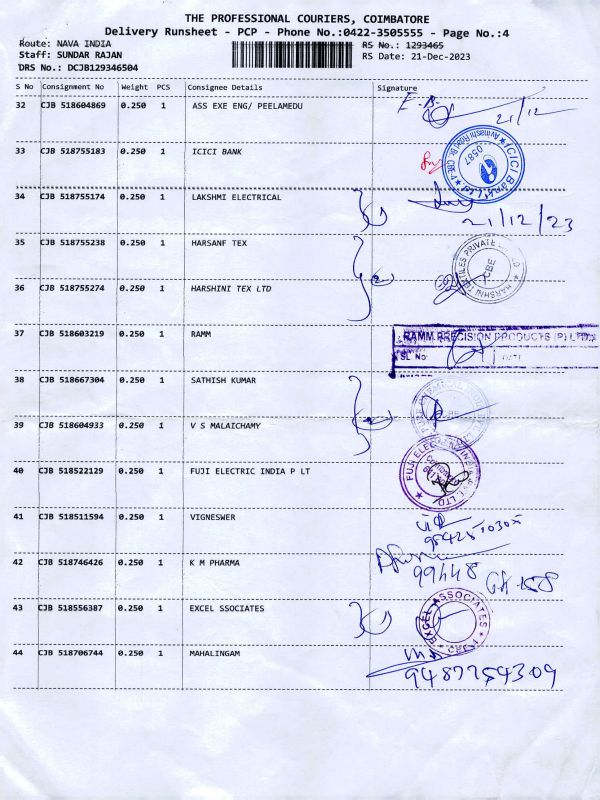 THE PROFESSIONAL COURIERS, COIMBATORE
Delivery Runsheet - PCP - Phone No.:0422-3505555 - Page No.:4
Route: NAVA INDIA RS No.: 1293465
Staff: SUNDAR RAJAN RS Date: 21-Dec-2023
DRS No.: DCJB129346504
S No Consignment No Weight PCS Consignee Details Signature
32 CJB 518604869 0.250 1 ASS EXE ENG/ PEELAMEDU 21/12
33 CJB 518755183 0.250 1 ICICI BANK
ICICI Bank Ltd
0587
34 CJB 518755174 0.250 1 LAKSHMI ELECTRICAL
21/12/23
35 CJB 518755238 0.250 1 HARSANF TEX
HARSHINI TEXTILES PRIVATE
CBE
36 CJB 518755274 0.250 1 HARSHINI TEX LTD
37 CJB 518603219 0.250 1 RAMM
RAMM PRECISION PRODUCTS (P) LTD.
SL No DATE
38 CJB 518667304 0.250 1 SATHISH KUMAR
39 CJB 518604933 0.250 1 V S MALAICHAMY
40 CJB 518522129 0.250 1 FUJI ELECTRIC INDIA P LT
FUJI ELECTRIC INDIA P. LTD
41 CJB 518511594 0.250 1 VIGNESWER
42 CJB 518746426 0.250 1 K M PHARMA
99448
43 CJB 518556387 0.250 1 EXCEL SSOCIATES
EXCEL ASSOCIATES
44 CJB 518706744 0.250 1 MAHALINGAM
9487754309